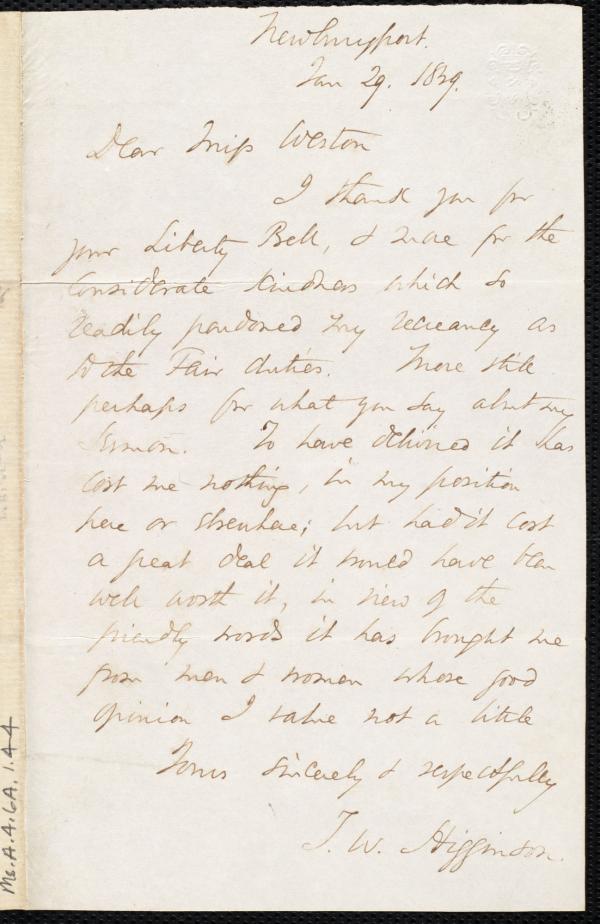 Newburyport.
Jan 29. 1849.
Dear Miss Weston
I thank you for
your Liberty Bell, & more for the
considerate kindness which so
readily pardoned my recreancy as
to the Fair duties. More still
perhaps for what you say about my
Sermon. To have delivered it has
cost me nothing, in my position
here or elsewhere; but had it cost
a great deal it would have been
well worth it, in view of the
friendly words it has brought me
from men & women whose good
opinion I value not a little
Yours sincerely & respectfully
T. W. Higginson.
Ms. A. 4. 6A. 1. 44